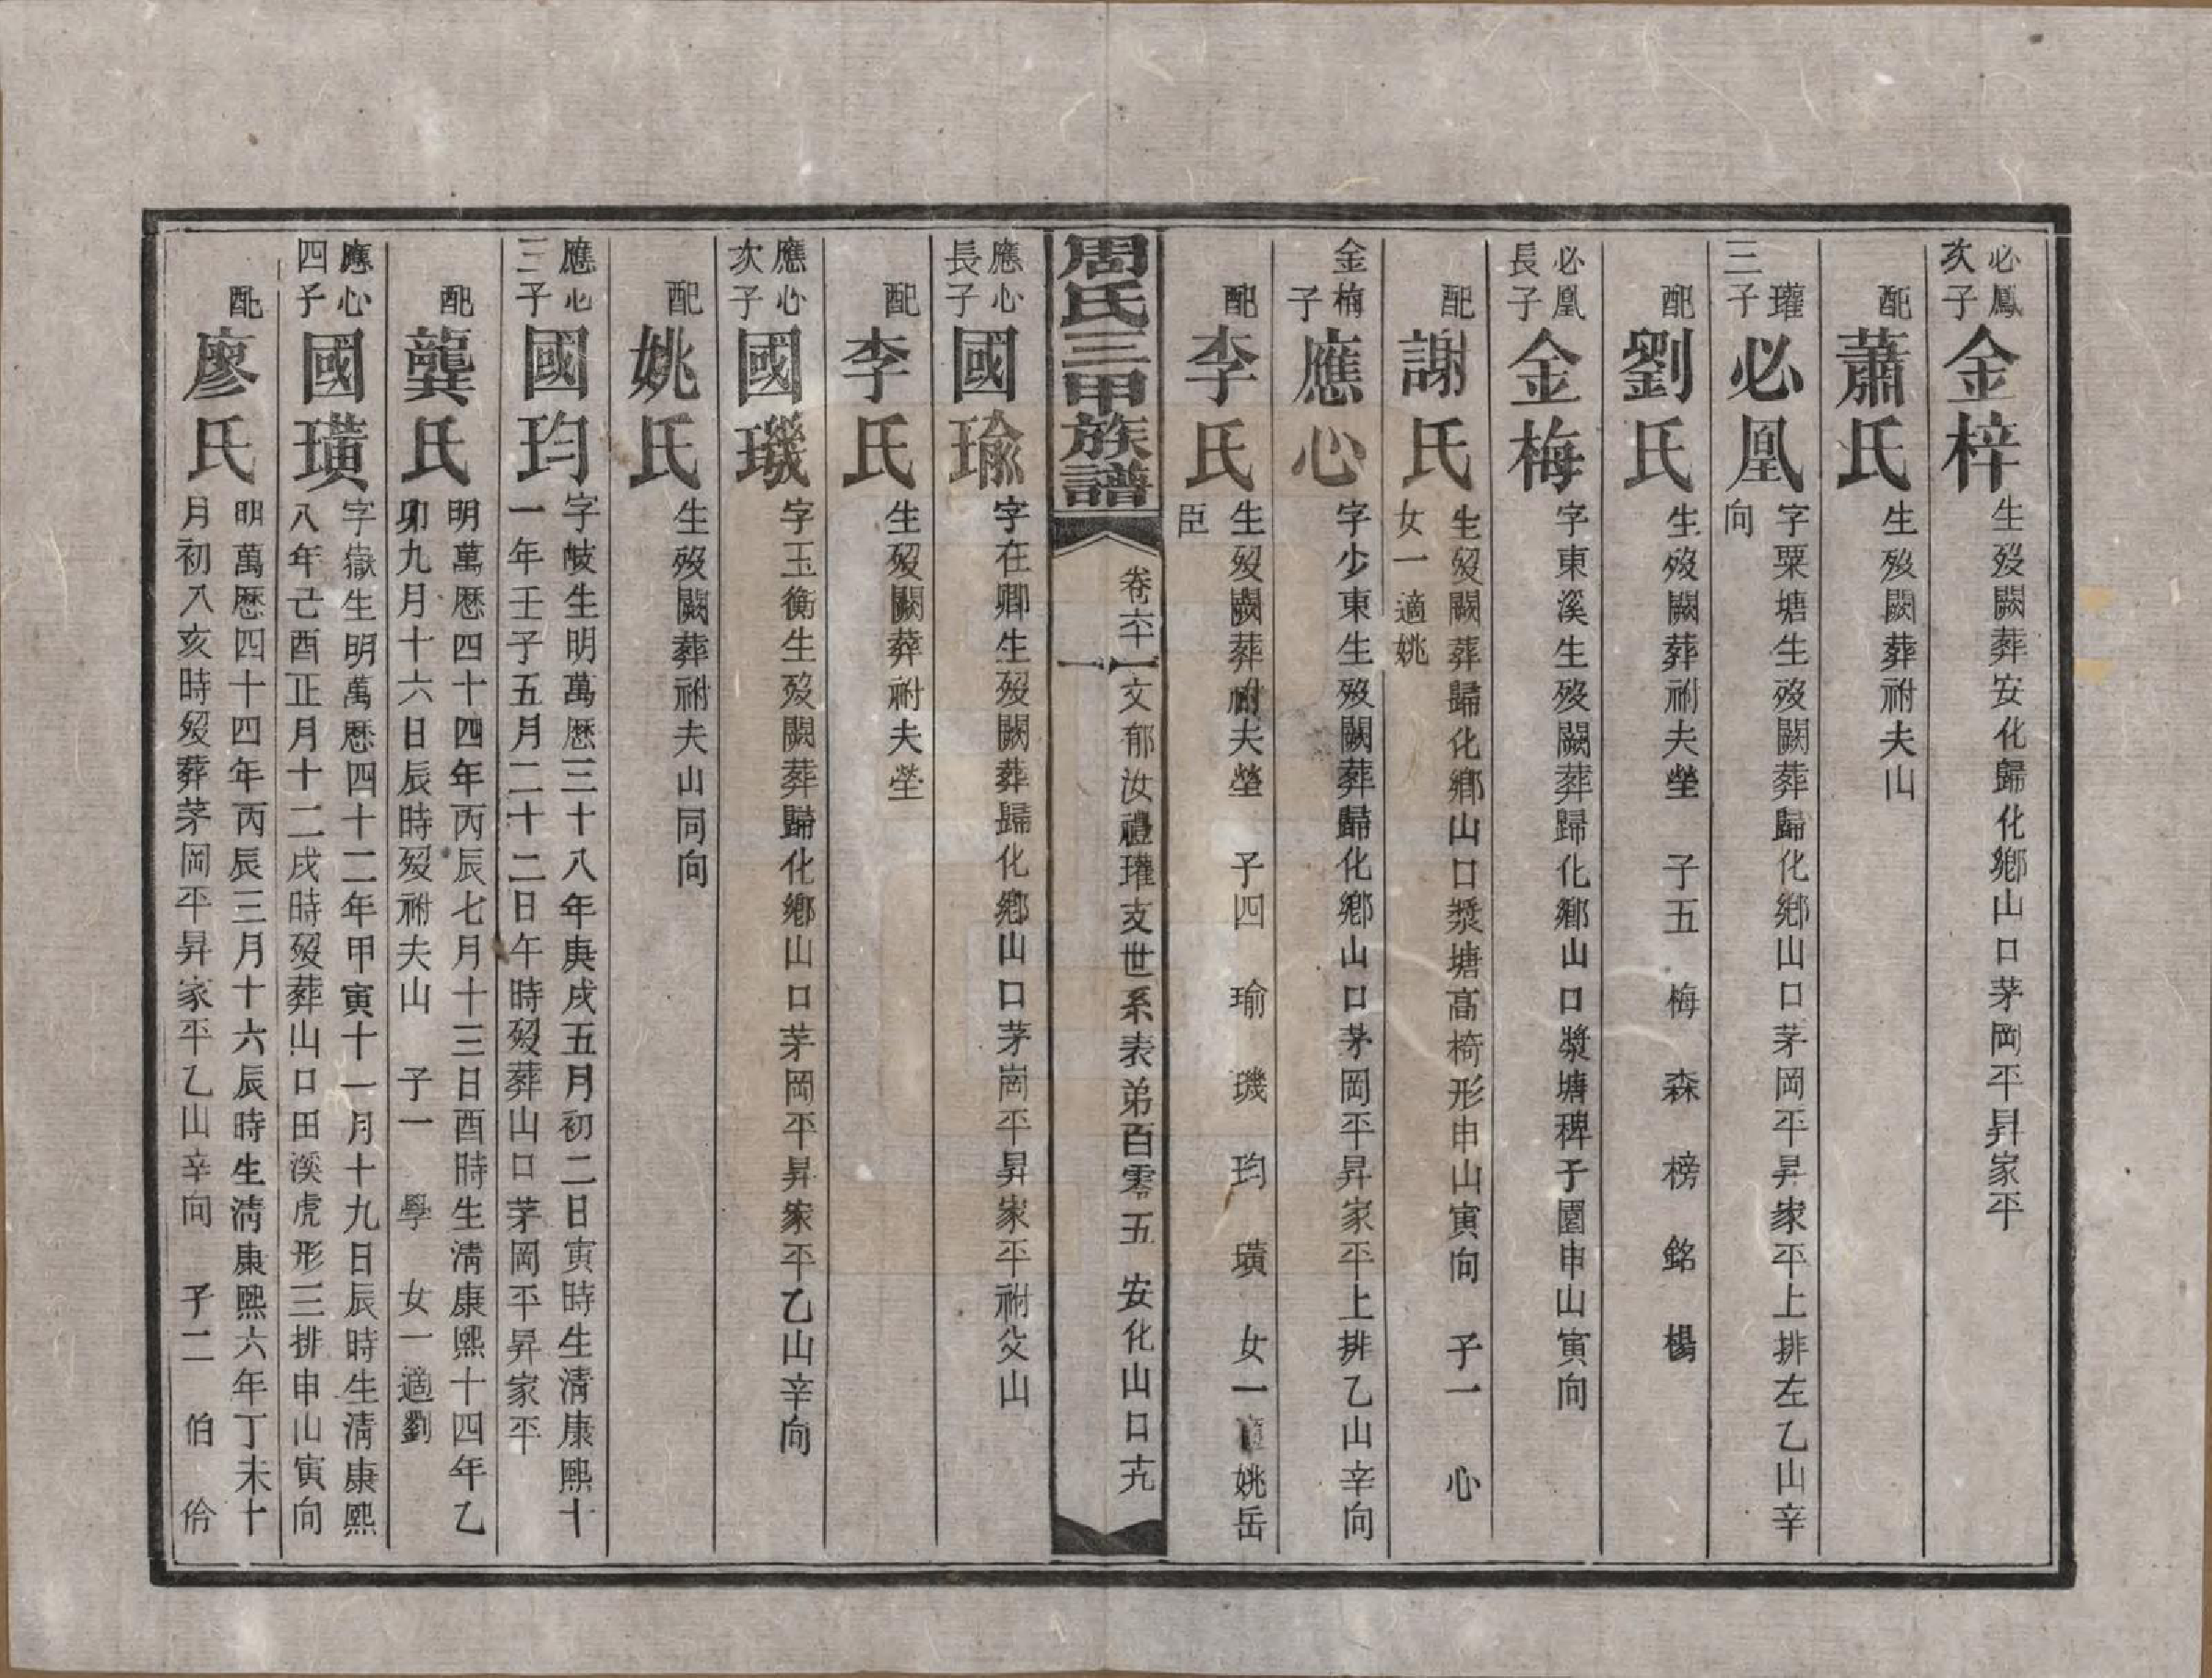 必鳳次子
金梓
生歿闕葬安化歸化鄉山口茅岡平昇家平
配
蕭氏
生歿闕葬祔夫山
瓘三子
必凰
字粟塘生歿闕葬歸化鄉山口茅岡平昇家平上排左乙山辛
向
配
劉氏
生歿闕葬祔夫塋 子五 梅 森 榜 銘 楊
必凰長子
金梅
字東溪生歿闕葬歸化鄉山口漿塘稗子園申山寅向
配
謝氏
生歿闕葬歸化鄉山口漿塘高椅形申山寅向 子一 心
女一適姚
金梅子
應心
字少東生歿闕葬歸化鄉山口茅岡平昇家平上排乙山辛向
配
李氏
生歿闕葬祔夫塋 子四 瑜 璣 玓 璜 女一適姚岳
臣
周氏三甲族譜
卷六十一
文郁汝禮瓘支世系表弟百零五 安化山口十九
應心長子
國瑜
字在卿生歿闕葬歸化鄉山口茅崗平昇家平祔父山
配
李氏
生歿闕葬祔夫塋
應心次子
國璣
字玉衡生歿闕葬歸化鄉山口茅岡平昇家平乙山辛向
配
姚氏
生歿闕葬祔夫山同向
應心三子
國玓
字岐生明萬歷三十八年庚戌五月初二日寅時生清康熙十
一年壬子五月二十二日午時歿葬山口茅岡平昇家平
配
龔氏
明萬歷四十四年丙辰七月十三日酉時生清康熙十四年乙
卯九月十六日辰時歿祔夫山 子一 學 女一適劉
應心四子
國璜
字嶽生明萬歷四十二年甲寅十一月十九日辰時生清康熙
八年己酉正月十二戌時歿葬山口田溪虎形三排申山寅向
配
廖氏
明萬歷四十四年丙辰三月十六辰時生清康熙六年丁未十
月初八亥時歿葬茅岡平昇家平乙山辛向 子二 伯 佮